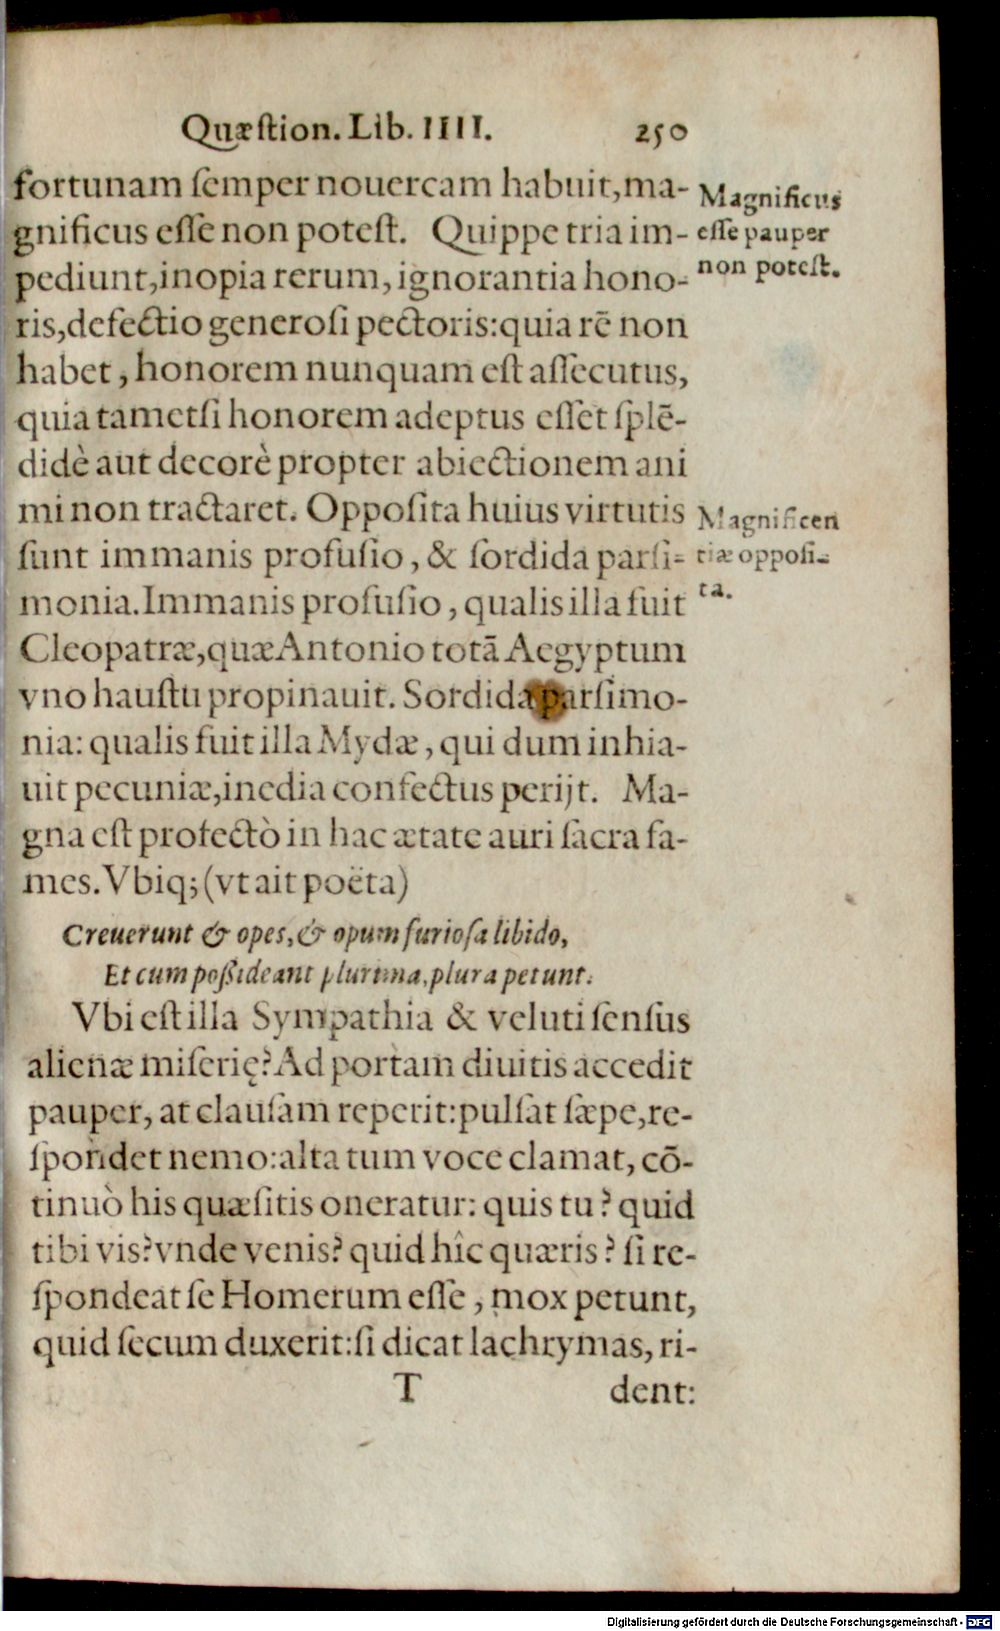 Quæſtion. Lib. IIII. 250
fortunam ſemper nouercam habuit, ma-
gnificus eſſe non poteſt. Quippe tria im-
pediunt, inopia rerum, ignorantia hono-
ris, defectio generoſi pectoris: quia rē non
habet, honorem nunquam eſt aſſecutus,
quia tametſi honorem adeptus eſſet ſplē-
didè aut decorè propter abiectionem ani
mi non tractaret. Oppoſita huius virtutis
ſunt immanis profuſio, & ſordida parſi-
monia. Immanis profuſio, qualis illa fuit
Cleopatræ, quæ Antonio totā Aegyptum
vno hauſtu propinauit. Sordida parſimo-
nia: qualis fuit illa Mydæ, qui dum inhia-
uit pecuniæ, inedia confectus perijt. Ma-
gna eſt profectò in hac ætate auri ſacra fa-
mes. Vbiq; (vt ait poëta)
Creuerunt & opes, & opum furioſa libido,
Et cum poßideant plurima, plura petunt.
Vbi eſt illa Sympathia & veluti ſenſus
alienæ miſerię? Ad portam diuitis accedit
pauper, at clauſam reperit: pulſat ſæpe, re-
ſpondet nemo: alta tum voce clamat, cō-
tinuò his quæſitis oneratur: quis tu? quid
tibi vis? vnde venis? quid hîc quæris? ſi re-
ſpondeat ſe Homerum eſſe, mox petunt,
quid ſecum duxerit: ſi dicat lachrymas, ri-
T dent:
Magnificus
eſſe pauper
non poteſt.
Magnificen
tiæ oppoſi-
ta.
Digitalisierung gefördert durch die Deutsche Forschungsgemeinschaft - DFG